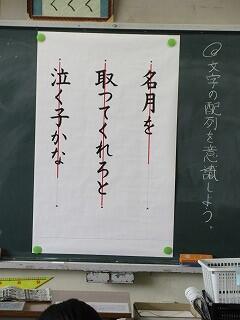 ◎文字の配列を意識しよう。
名月を
取ってくれろと
泣く子かな